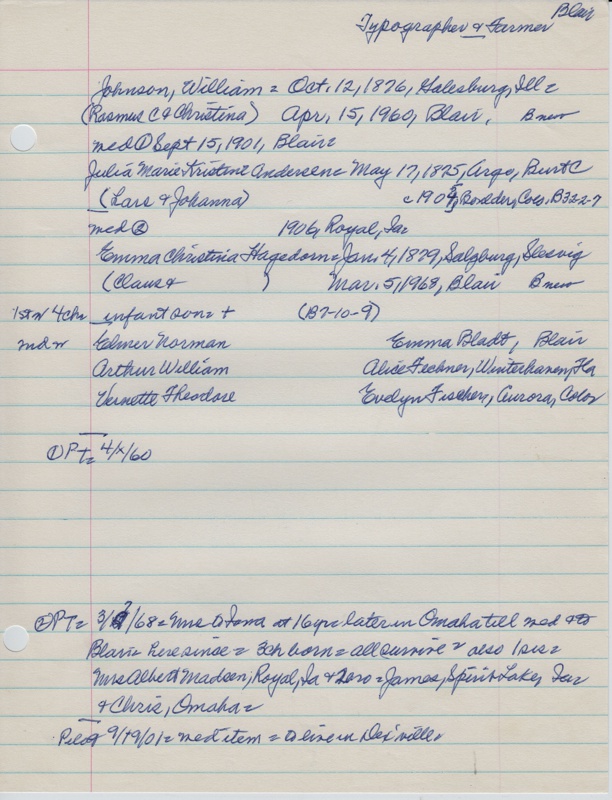 Blair
Typographer & Farmer
Johnson, William = Oct. 12, 1876, Galesburg, Ill =
(Rasmus C & Christina) Apr. 15, 1960, Blair, B new
med ① Sept 15, 1901, Blair =
Julia Marie Kristine Andersen = May 17, 1875, Argo, Burt C
(Lars & Johanna) c 1905, Boulder, Colo. B32-2-7
med ② 1906, Royal, Ia =
Emma Christina Hagedorn = Jan. 4, 1879, Salzburg, Slesvig
(Claus & ) Mar. 5, 1968, Blair B new
1st w 4 ch = infant son = + (B7-10-9)
md w Elmer Norman Emma Bladt, Blair
Arthur William Alice Fechner, Winterhaven, Fla
Vernette Theodore Evelyn Fischer, Aurora, Colo
① PT = 4/x/60
② PT = 3/7/68 = Emma to Iowa at 16 yr = later in Omaha till med & to
Blair = here since = 3 ch born = all survive = also 1 sis =
Mrs Albert Madsen, Royal, Ia & 2 bro = James, Spirit Lake, Ia =
& Chris, Omaha =
Pilot 9/19/01 = med item = to live in Dex'ville